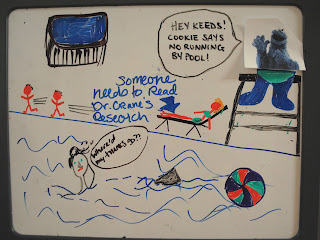 HEY KEEDS!
COOKIE SAYS
NO RUNNING
BY POOL!
Someone
needs to Read
Dr. Crane's
Research
where'd
my trunks go??